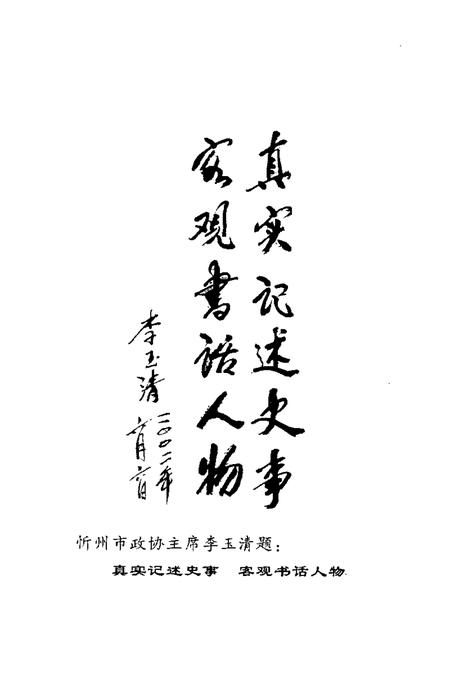 真实记述史事
客观书话人物
李玉清
二〇〇二年
六月六日
忻州市政协主席李玉清题：
真实记述史事　客观书话人物